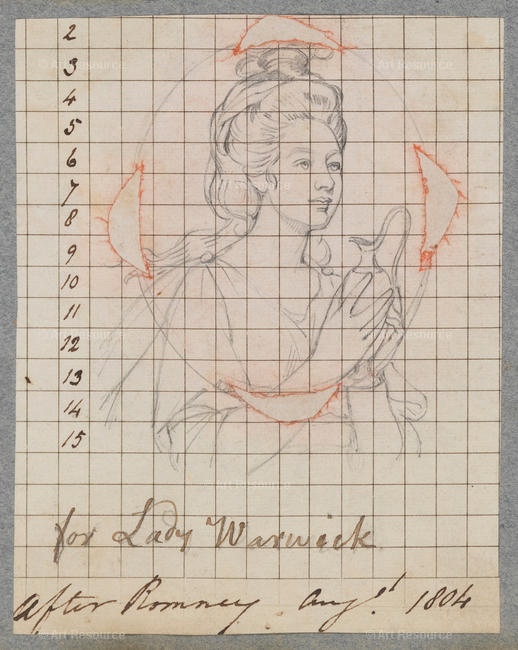 2
3
4
5
6
7
8
9
10
11
12
13
14
15
for Lady Warwick
After Romney. Augst 1804
© Art Resource